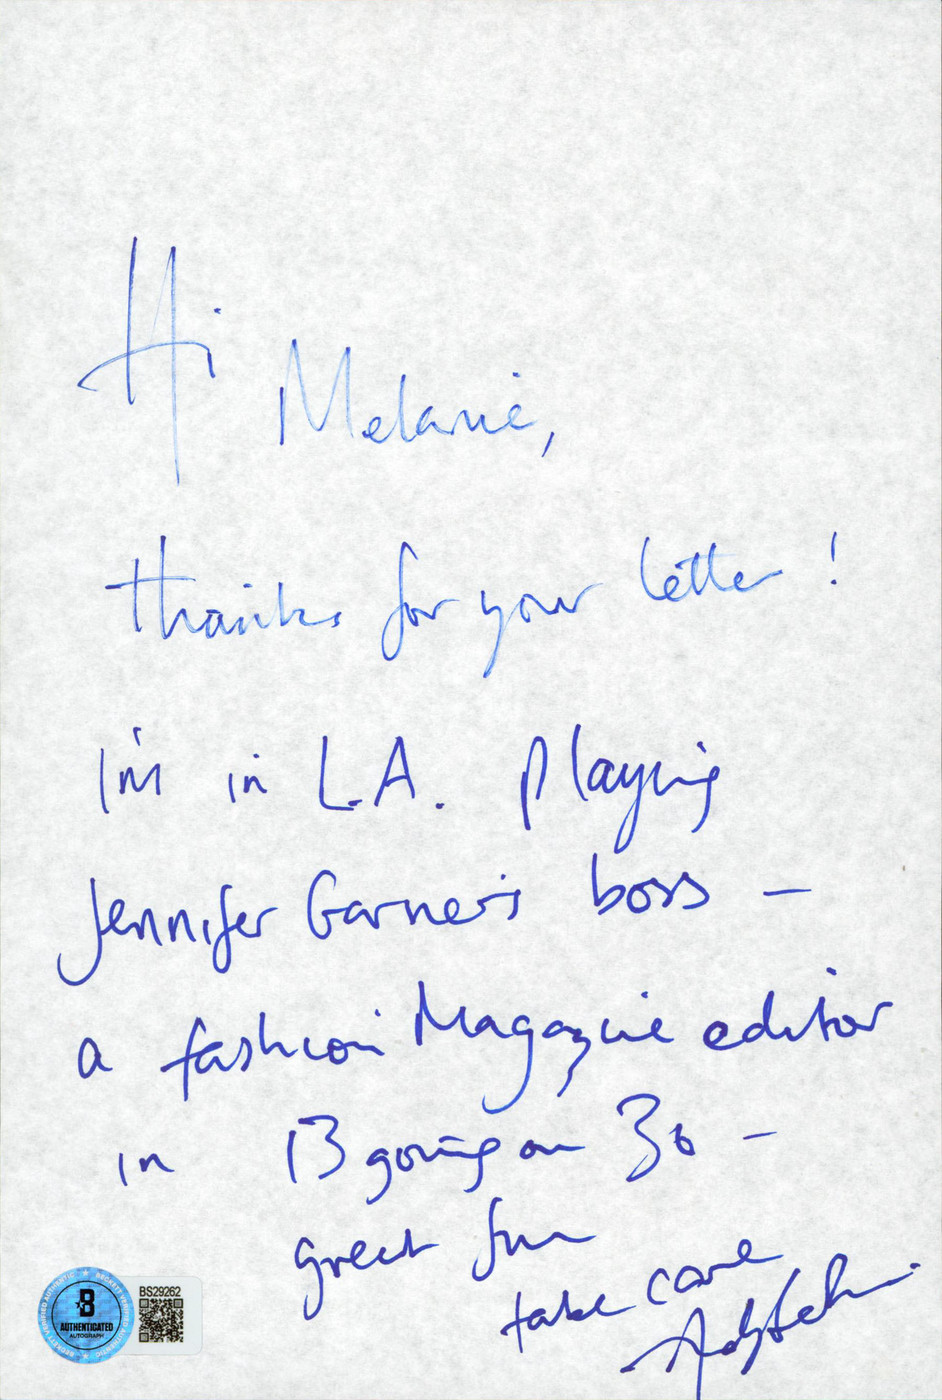 Hi Melanie,
thanks for your letter!
I'm in L.A. playing
Jennifer Garner's boss –
a fashion Magazine editor
in 13 going on 30 –
great fun
take care
BS29262
B
AUTHENTICATED
AUTOGRAPH